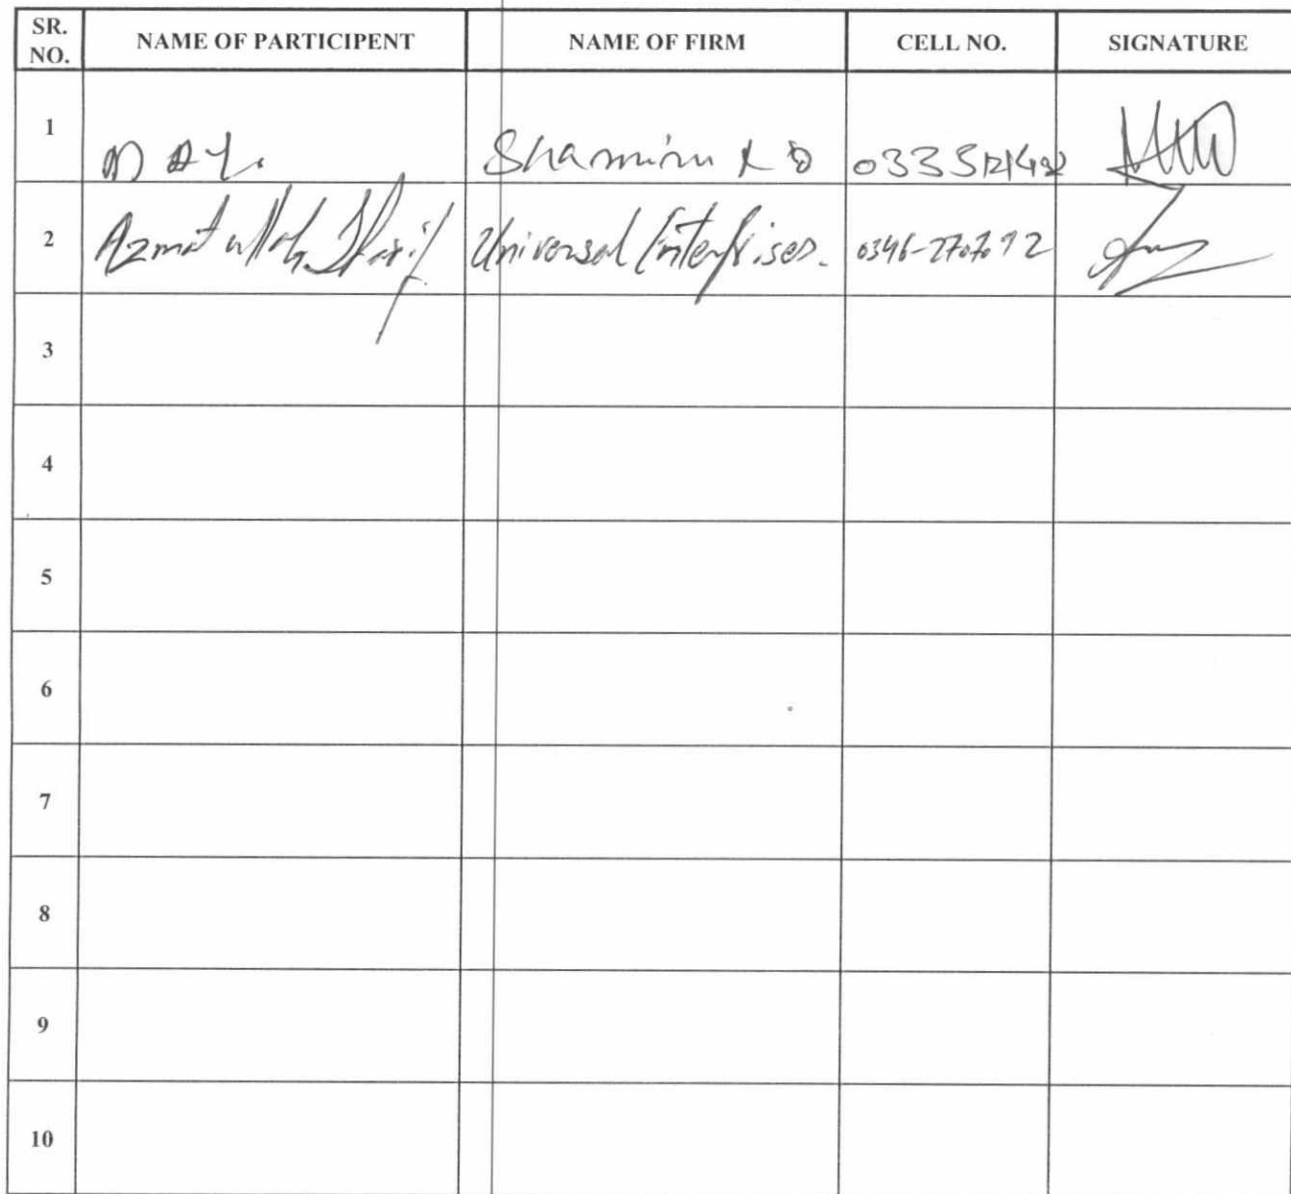 SR. NO. NAME OF PARTICIPENT NAME OF FIRM CELL NO. SIGNATURE
1 Shamim
2 Azmat ullah Sharif Universal Enterprises.
3
4
5
6
7
8
9
10